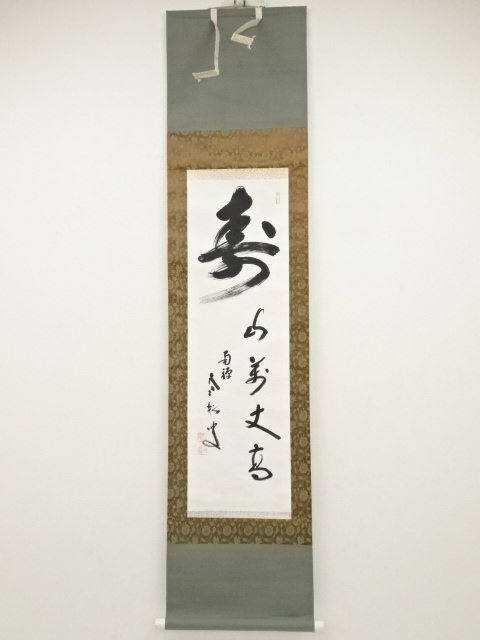 寿
山萬丈高
南禅